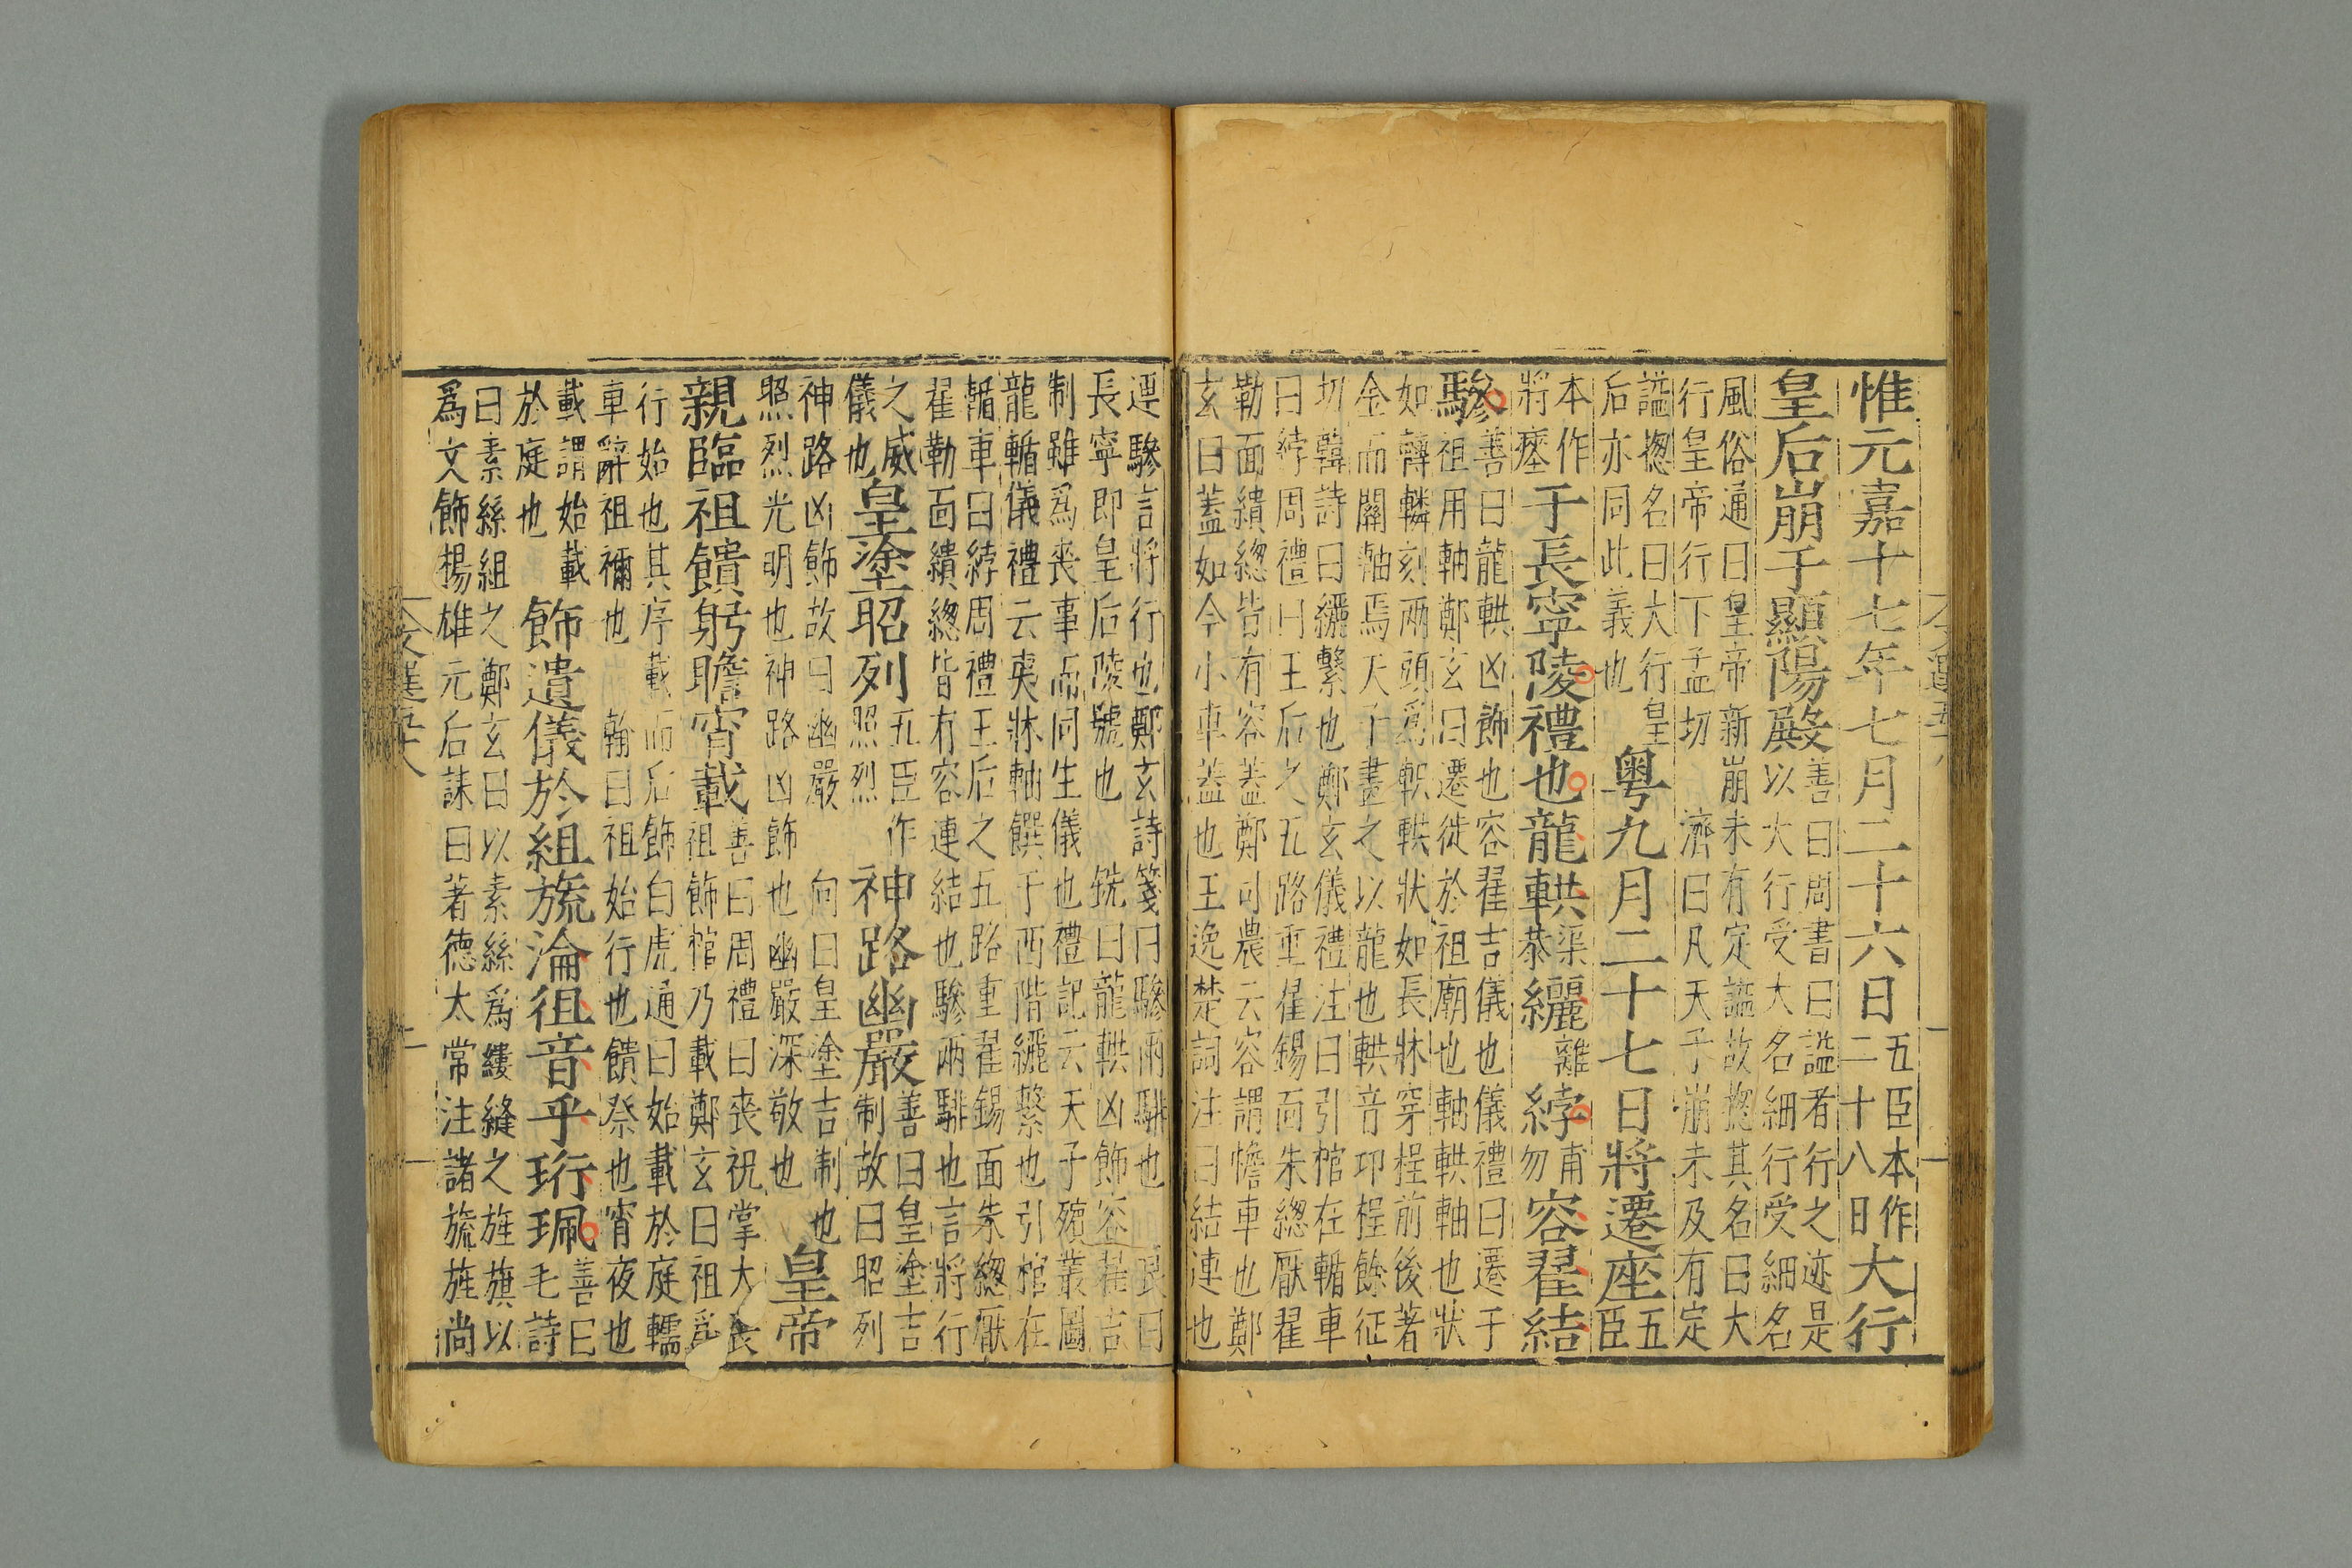 惟元嘉十七年七月二十六日五臣本作二十八日大行
皇后崩于顯陽殿善曰周書曰謚者行之迹是以大行受大名細行受細名
風俗通曰皇帝新崩未有定謚故揔其名曰大行皇帝行下孟切 濟曰凡天子崩未及有定
謚揔名曰大行皇后亦同此義也粤九月二十七日將遷座五臣
本作將瘞于長寧陵禮也龍輁渠恭纚離綍甫勿容翟結
驂善曰龍輁凶飾也容翟吉儀也儀禮曰遷于祖用軸鄭玄曰遷徙於祖廟也軸輁軸也軸狀
如轉轔刻兩頭爲軹輁狀如長牀穿桯前後著金而關軸焉天子畫之以龍也輁音邛桯餘征
切韓詩曰纚繫也鄭玄儀禮注曰引棺在輴車曰綍周禮曰王后之五路重翟錫面朱總厭翟
勒面繢總皆有容蓋鄭司農云容謂幨車也鄭玄曰蓋如今小車蓋也王逸楚詞注曰結連也
遷驂言將行也鄭玄詩箋曰驂兩騑也 良曰長寧即皇后陵號也 銑曰龍輁凶飾容翟吉
制雖爲喪事而同生儀也禮記云天子殯叢圖龍輴儀禮云夷牀軸饌于西階纚繫也引棺在
輴車曰綍周禮王后之五路重翟錫面朱總厭翟勒面繢總皆有容連結也驂兩騑也言將行
之威儀也皇塗昭列五臣作照烈神路幽嚴善曰皇塗吉制故曰昭列
神路凶飾故曰幽嚴 向曰皇塗吉制也照烈光明也神路凶飾也幽嚴深敬也皇帝
親臨祖饋躬瞻宵載善曰周禮曰喪祝掌大喪祖飾棺乃載鄭玄曰祖爲
行始也其序載而后飾白虎通曰始載於庭轜車辭祖禰也 翰曰祖始行也饋祭也宵夜也
載謂始載於庭也飾遺儀於組旒淪徂音乎珩珮善曰毛詩
曰素絲組之鄭玄曰以素絲爲縷縫之旌旗以爲文飾楊雄元后誄曰著德太常注諸旒旌尚